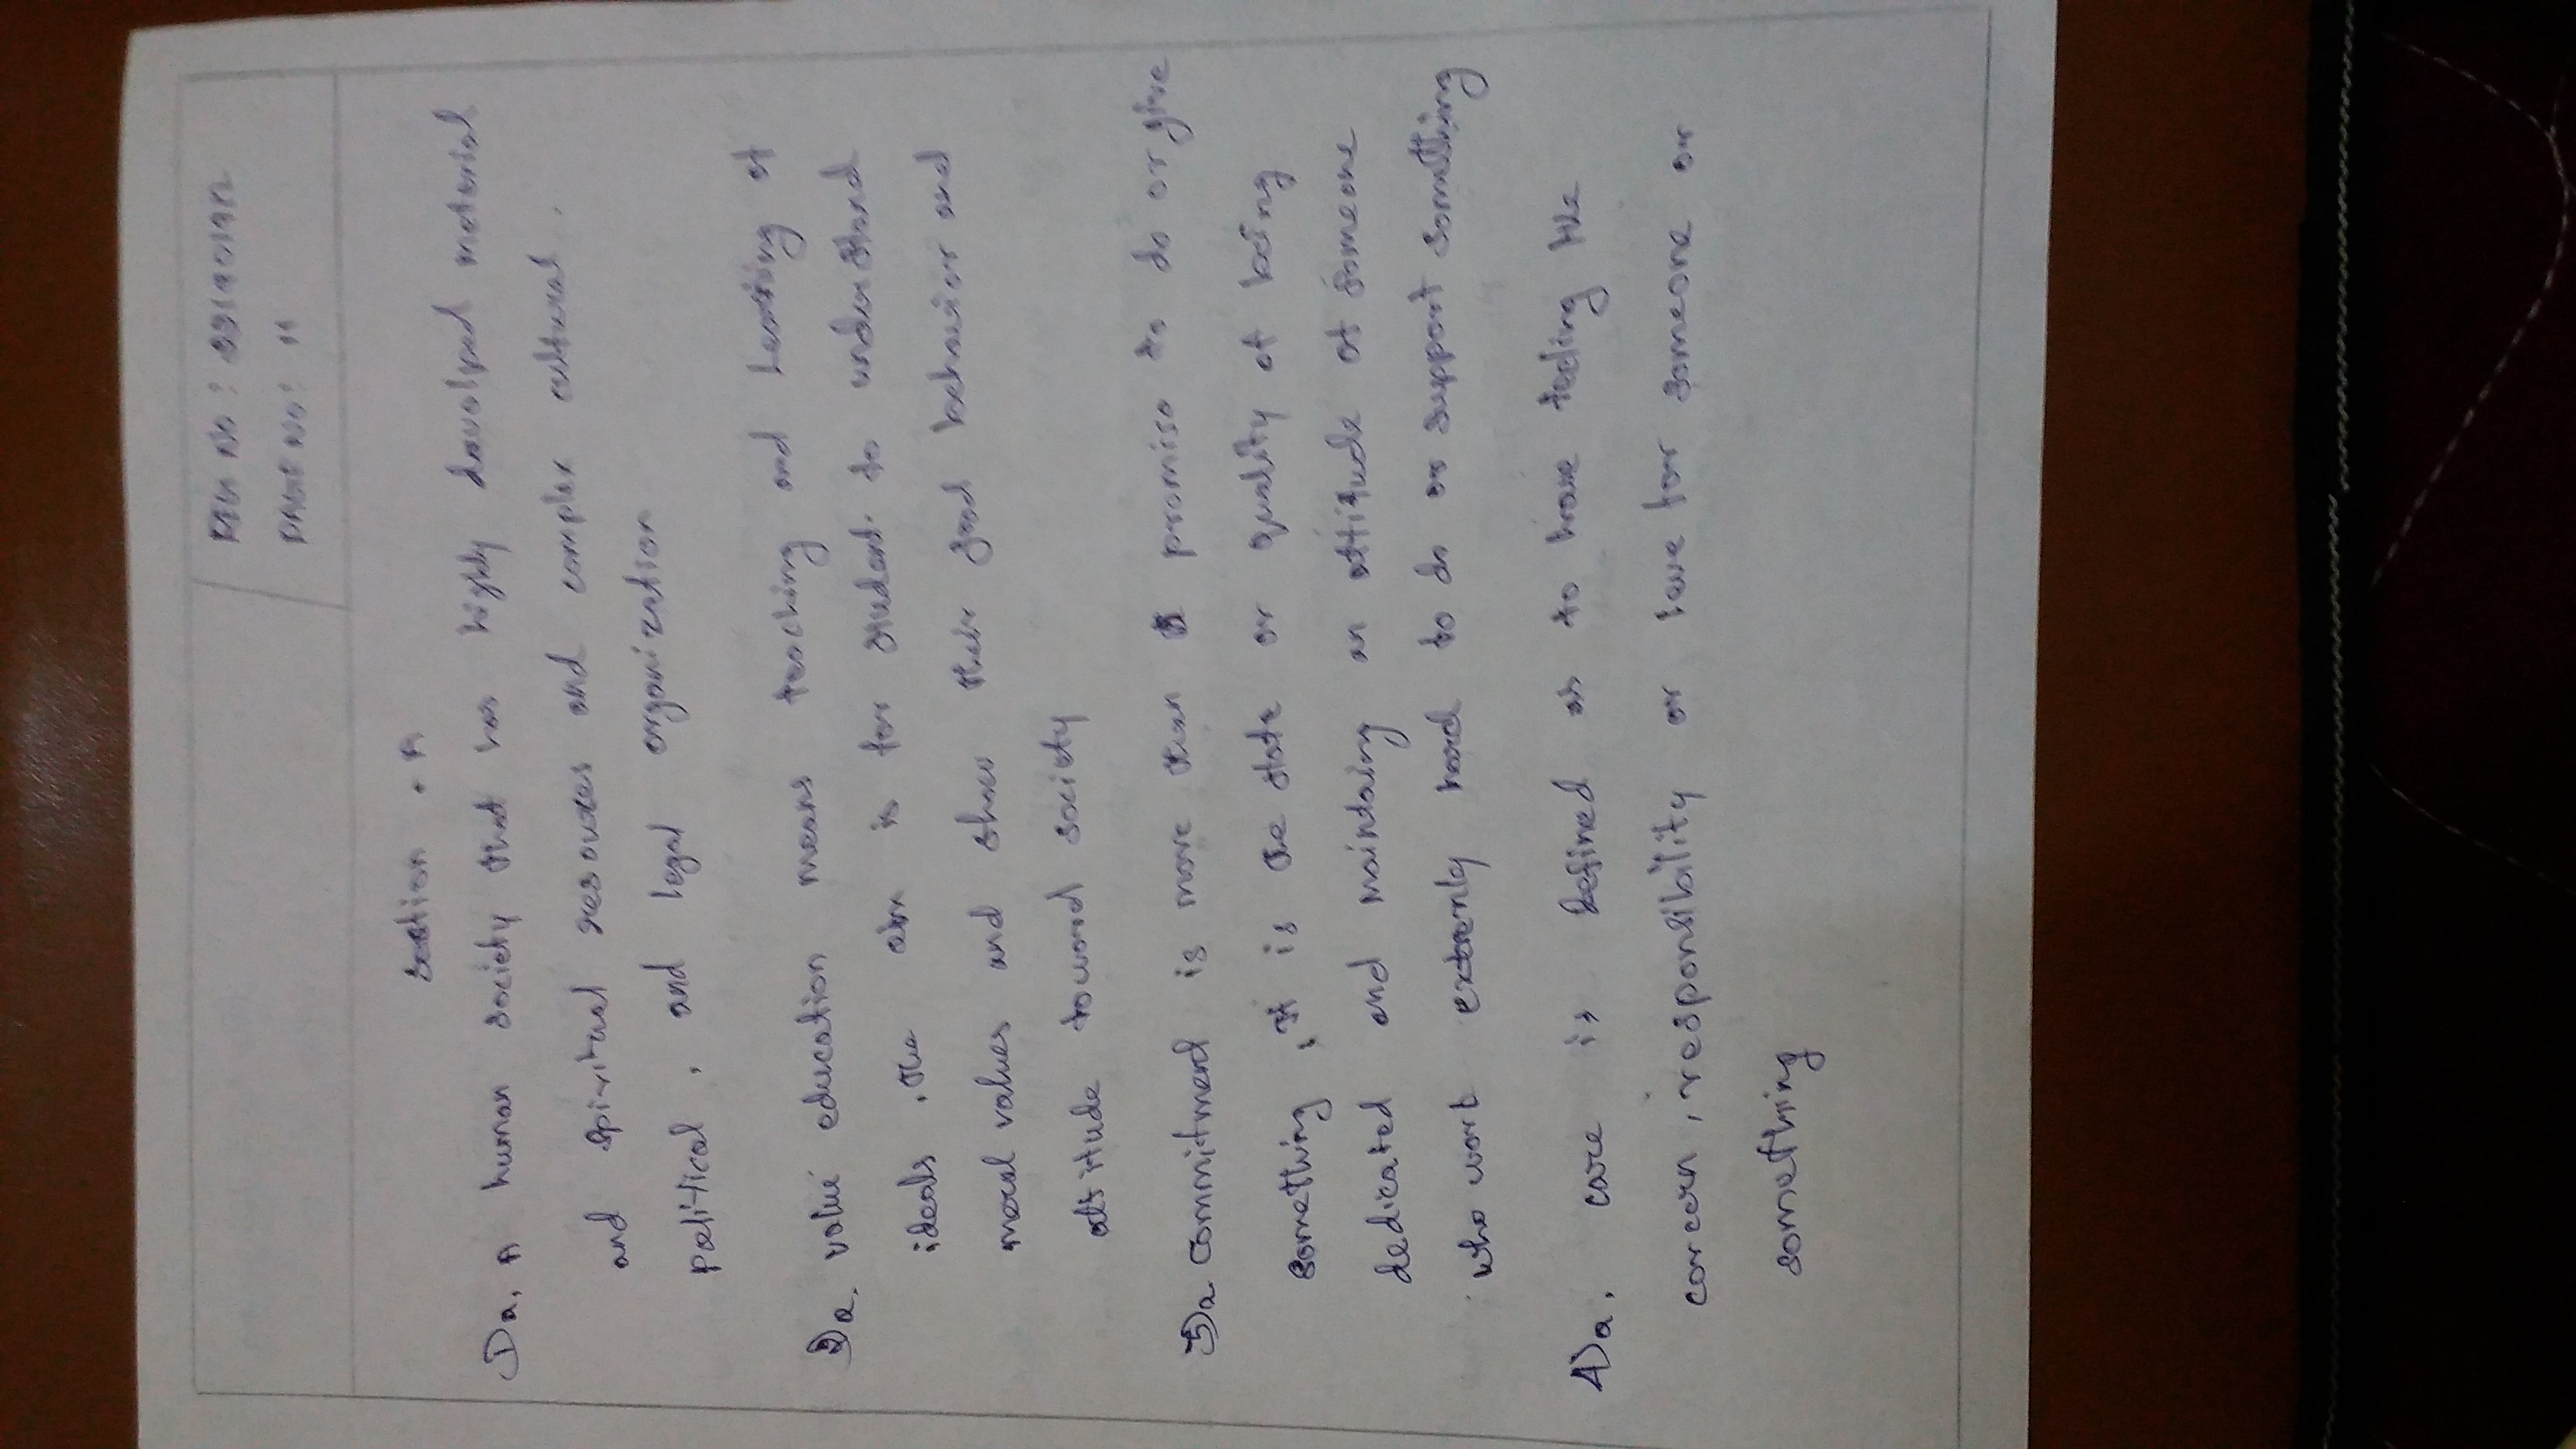 REG NO :
PAGE NO : 11
Section . A
1)a, A human society that has highly davelped material
and spiritual resources and complex cultural ,
political , and legal organization
2)a. value education means teaching and Learning of
ideals , the aim is for student to understand
moral values and show their good behavior and
attitude toward society
3)a. Commitment is more than a promise to do or give
something , It is the state or quality of being
dedicated and maintaing an attitude of someone
who work extremly hard to do or support something
4)a, care is defined as to have feeling like
concern , responsibility or love for someone or
something